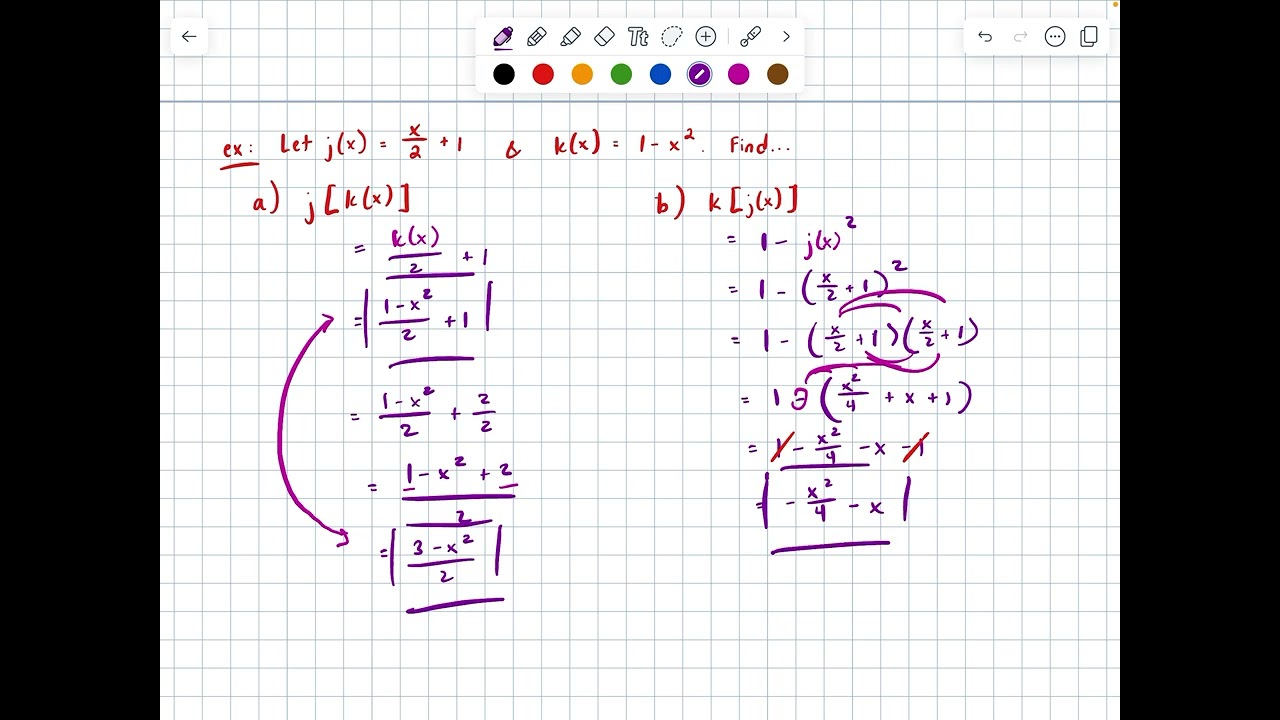 Tt
ex: Let j(x) = x/2 + 1 & k(x) = 1 - x². Find...
a) j[k(x)]
= k(x)/2 + 1
= (1-x²)/2 + 1
= (1-x²)/2 + 2/2
= (1 - x² + 2)/2
= (3 - x²)/2
b) k[j(x)]
= 1 - j(x)²
= 1 - (x/2 + 1)²
= 1 - (x/2 + 1)(x/2 + 1)
= 1 - (x²/4 + x + 1)
= 1 - x²/4 - x - 1
= - x²/4 - x